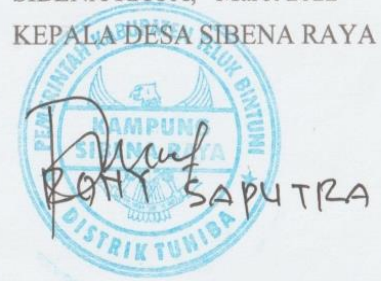 KEPALA DESA SIBENA RAYA
PEMERINTAH KABUPATEN TELUK BINTUNI
KAMPUNG
SIBENA RAYA
SAPUTRA
DISTRIK TUHIBA